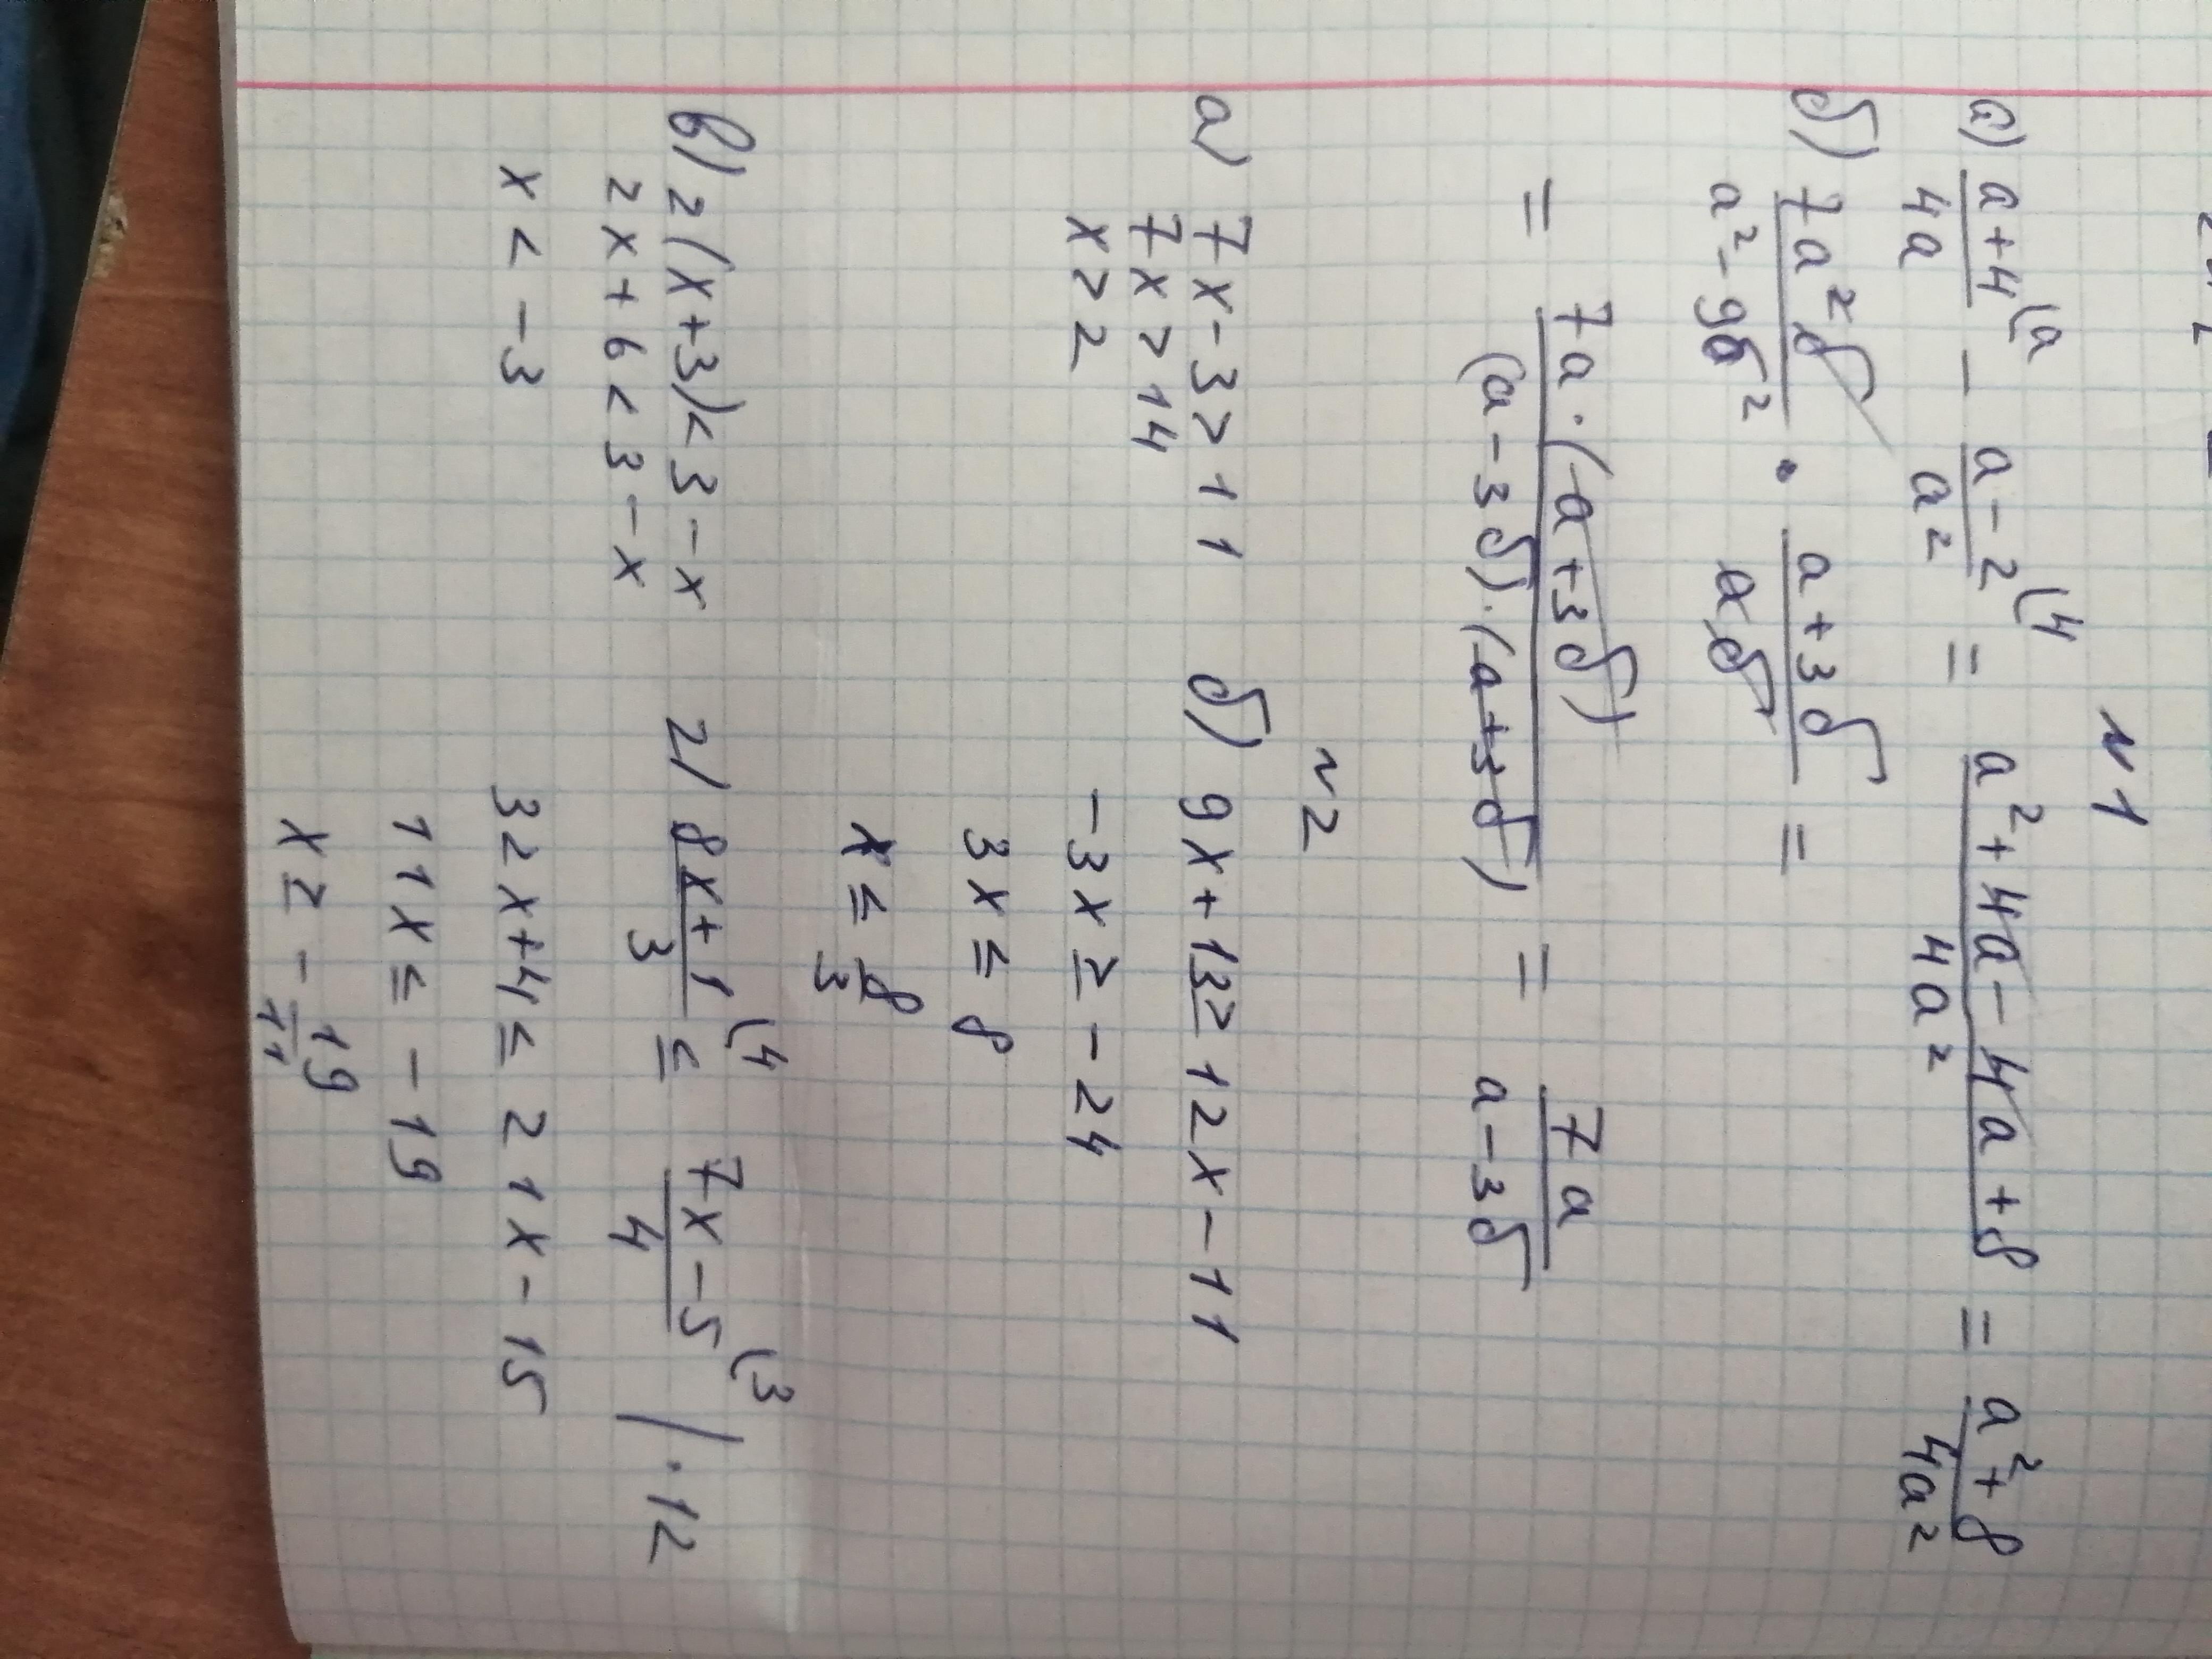 N1
а) (a+4)/(4a) ⁽ᵃ - (a-2)/a² ⁽⁴ = (a²+4a-4a+8)/(4a²) = (a²+8)/(4a²)
б) (7a²б)/(a²-9б²) · (a+3б)/(aб) =
= (7a·(a+3б))/((a-3б)·(a+3б)) = (7a)/(a-3б)
N2
а) 7x-3>11
7x>14
x>2
б) 9x+13≥12x-11
-3x≥-24
3x≤8
x≤8/3
в) 2(x+3)<3-x
2x+6<3-x
x<-3
г) (8x+1)/3 ⁽⁴ ≤ (7x-5)/4 ⁽³ | ·12
32x+4≤21x-15
11x≤-19
x≥-19/11